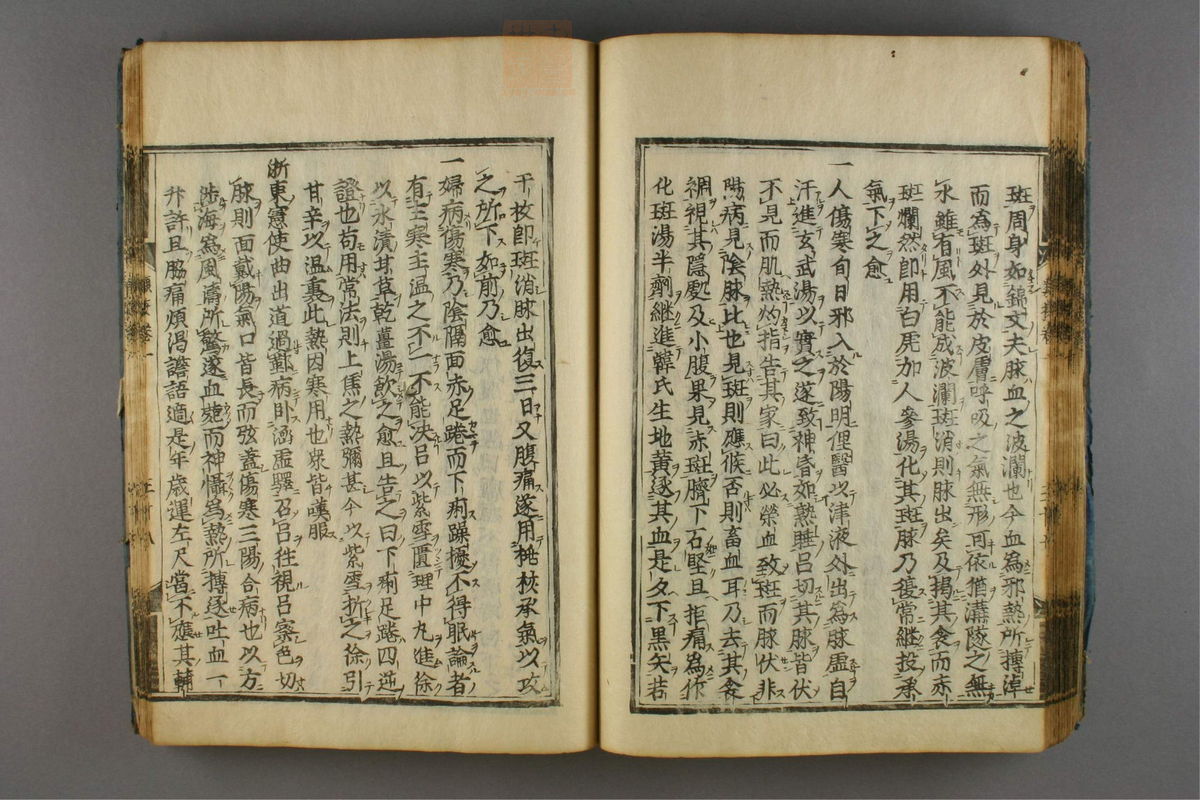 斑周身如錦文夫脉血之波瀾也今血為邪熱所摶淖
而為斑外見於皮膚呼吸之氣無形可依猶溝隧之無
水雖有風不能成波瀾斑消則脉出矣及揭其衾而赤
斑爛然即用白虎加人參湯化其斑脉乃復常繼投承
氣下之愈
一人傷寒旬日邪入於陽明俚醫以津液外出為脉虛自
汗進玄武湯以實之遂致神昏如熟睡呂切其脉皆伏
不見而肌熱灼指告其家曰此必榮血致斑而脉伏非
陽病見陰脉比也見斑則應候否則畜血耳乃去其衾
裯視其隱處及小腹果見赤斑臍下石堅且拒痛為作
化斑湯半劑繼進韓氏生地黄逐其血是夕下黑矢若
干枚即斑消脉出復三日又腹痛遂用桃核承氣以攻
之所下如前乃愈
一婦病傷寒乃陰隔面赤足踡而下痢躁擾不得眠論者
有主寒主温之不一不能决呂以紫雪匱理中丸進徐
以氷漬甘草乾薑湯飲之愈且告之曰下痢足踡四逆
證也苟用常法則上焦之熱彌甚今以紫雪折之徐引
甘辛以温裏此熱因寒用也衆皆嘆服
浙東憲使曲出道過鄞病卧涵虛驛召呂徃視呂察色切
脉則面戴陽氣口皆長而弦盖傷寒三陽合病也以方
涉海為風濤所驚遂血菀而神懾為熱所摶遂吐血一
升許且脇痛煩渴譫語適是年歳運左尺當不應其輔